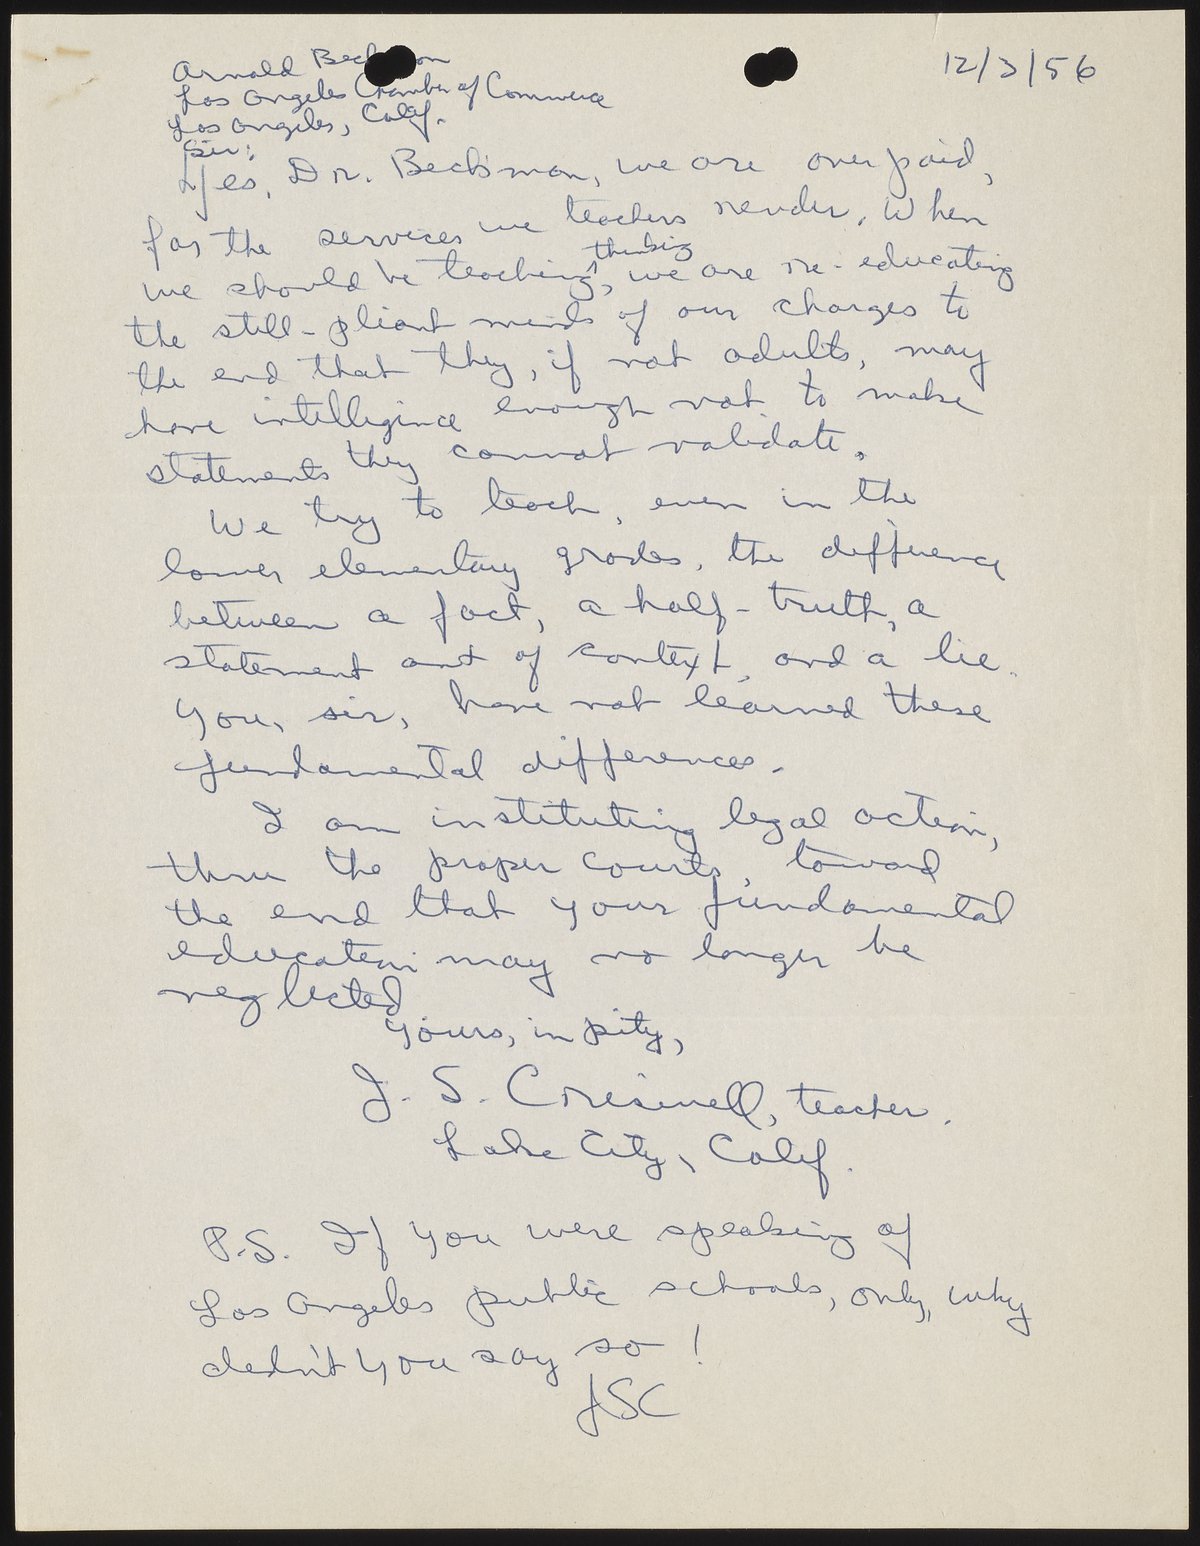 Arnold Beckman
Los Angeles Chamber of Commerce
Los Angeles, Calif.
12/3/56
Sir:
Yes, Dr. Beckman, we are overpaid,
for the services we teachers render. When
we should be teaching thinking, we are re-educating
the still-pliant minds of our charges to
the end that they, if not adults, may
have intelligence enough not to make
statements they cannot validate.
We try to teach, even in the
lower elementary grades, the difference
between a fact, a half-truth, a
statement out of context, and a lie.
You, sir, have not learned these
fundamental differences.
I am instituting legal action,
thru the proper courts, toward
the end that your fundamental
education may no longer be
neglected
Yours, in pity,
J. S. Creswell, teacher.
Lake City, Calif.
P.S. If you were speaking of
Los Angeles public schools, only, why
didn't you say so!
JSC